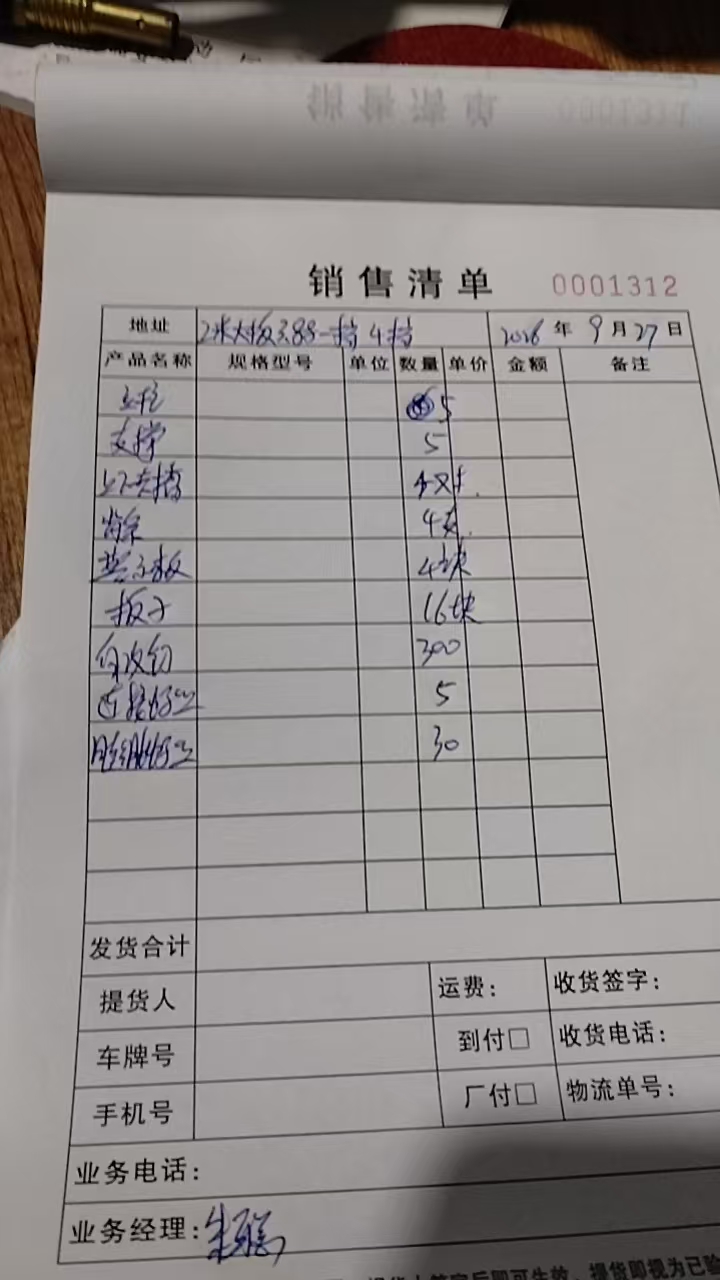 销售清单 0001312
地址 2米大板3.88一档 4档 2026年9月27日
产品名称 规格型号 单位 数量 单价 金额 备注
立柱 5
支撑 5
上下夹档 4对
4支
板 4块
板子 16块
自攻钉 300
连接 5
30
发货合计
提货人 运费: 收货签字:
车牌号 到付□ 收货电话:
手机号 厂付□ 物流单号:
业务电话:
业务经理: 朱